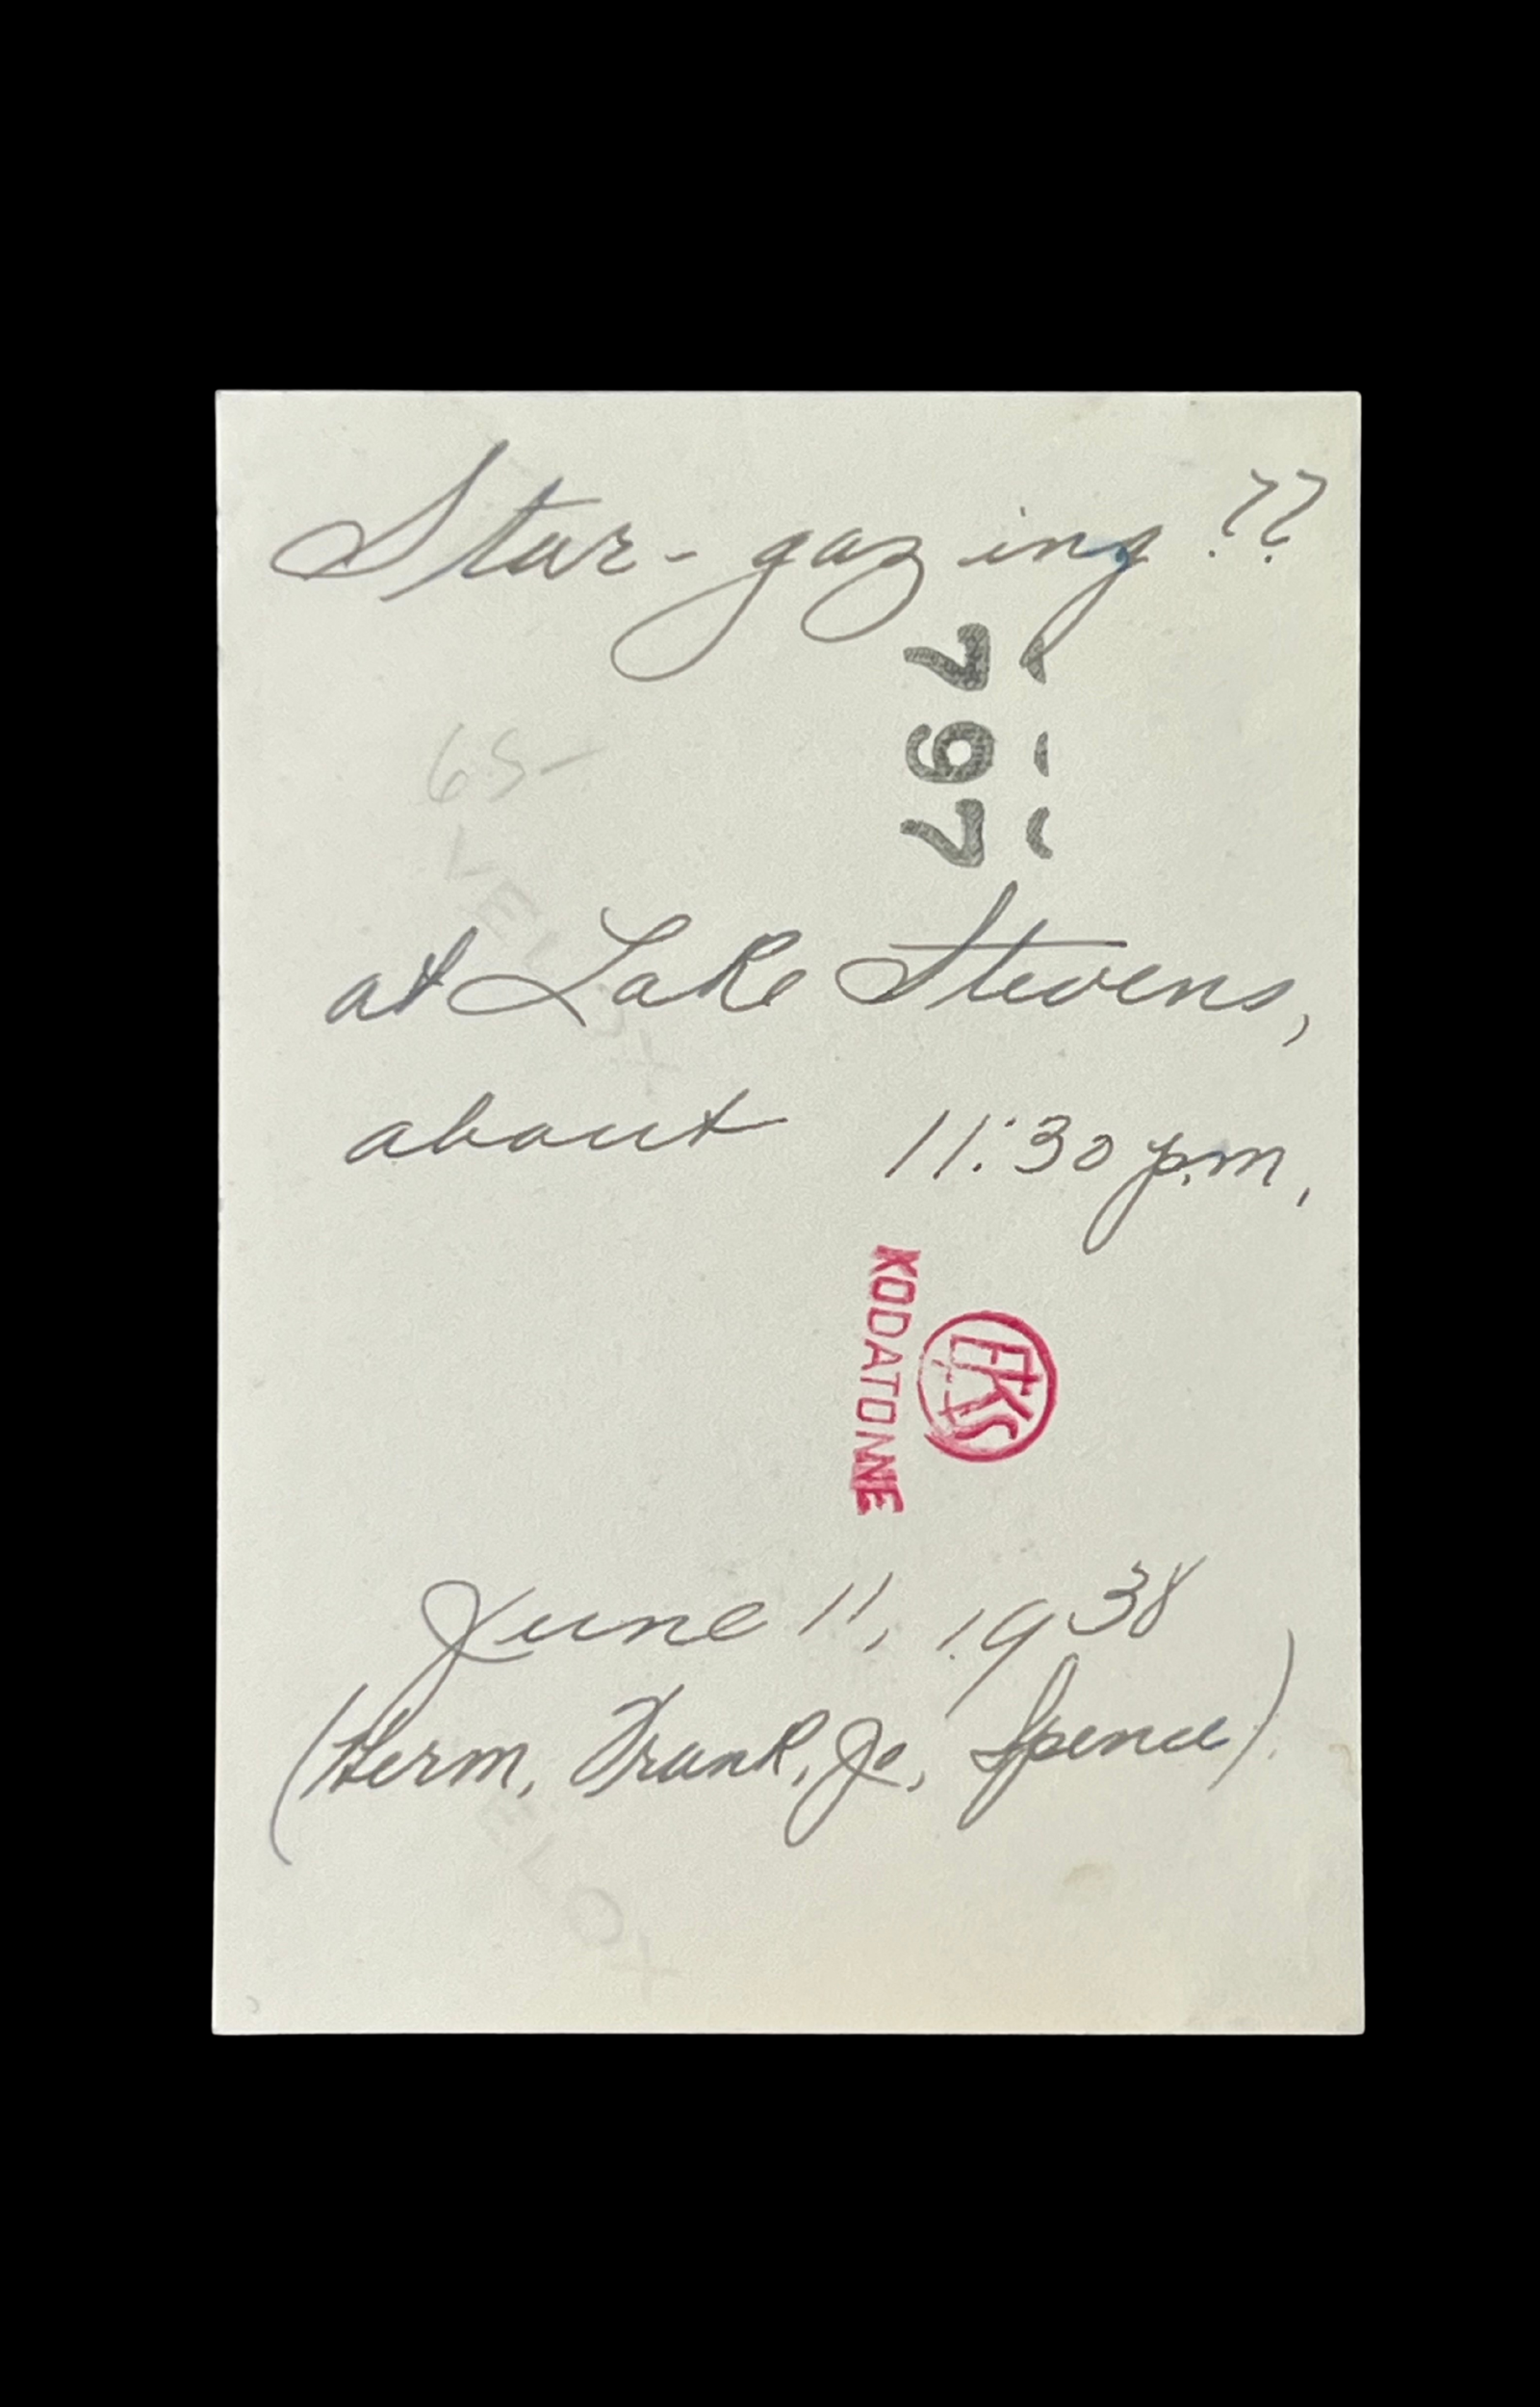 Star-gazing??
797
65-
VELOX
at Lake Stevens,
about 11:30 p.m.,
EKS
KODATONE
June 11, 1938
(Herm, Frank, Jo, Spence)
ELOX